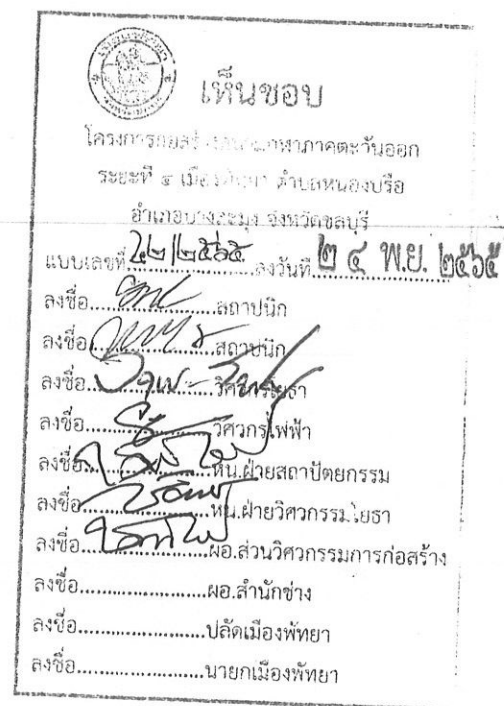 เห็นชอบ
โครงการก่อสร้างสนามกีฬาภาคตะวันออก
ระยะที่ ๔ เมืองพัทยา ตำบลหนองปรือ
อำเภอบางละมุง จังหวัดชลบุรี
แบบเลขที่ ๔๒/๒๕๖๕ ลงวันที่ ๒ ๔ พ.ย. ๒๕๖๕
ลงชื่อ....................สถาปนิก
ลงชื่อ....................สถาปนิก
ลงชื่อ....................วิศวกรโยธา
ลงชื่อ....................วิศวกรไฟฟ้า
ลงชื่อ....................หน.ฝ่ายสถาปัตยกรรม
ลงชื่อ....................หน.ฝ่ายวิศวกรรมโยธา
ลงชื่อ....................ผอ.ส่วนวิศวกรรมการก่อสร้าง
ลงชื่อ....................ผอ.สำนักช่าง
ลงชื่อ....................ปลัดเมืองพัทยา
ลงชื่อ....................นายกเมืองพัทยา